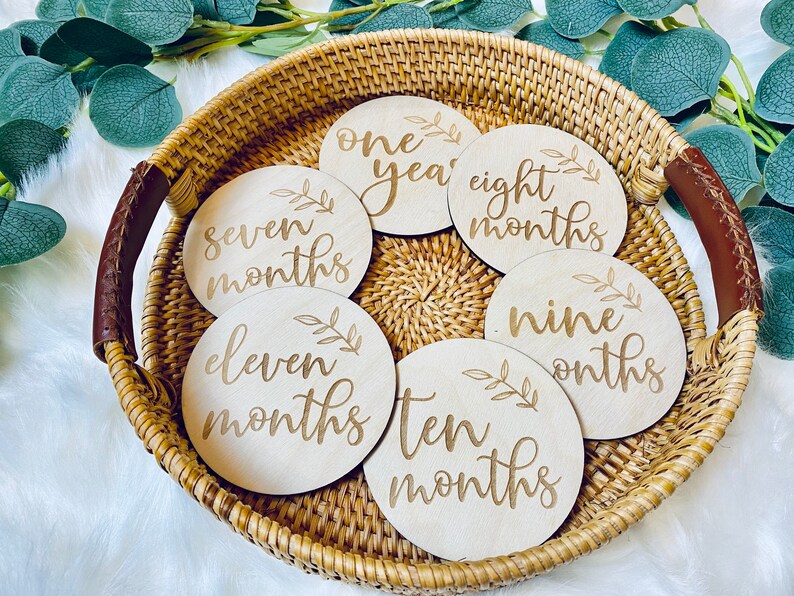 one
yea
eight
months
seven
months
nine
onths
eleven
months
ten
months